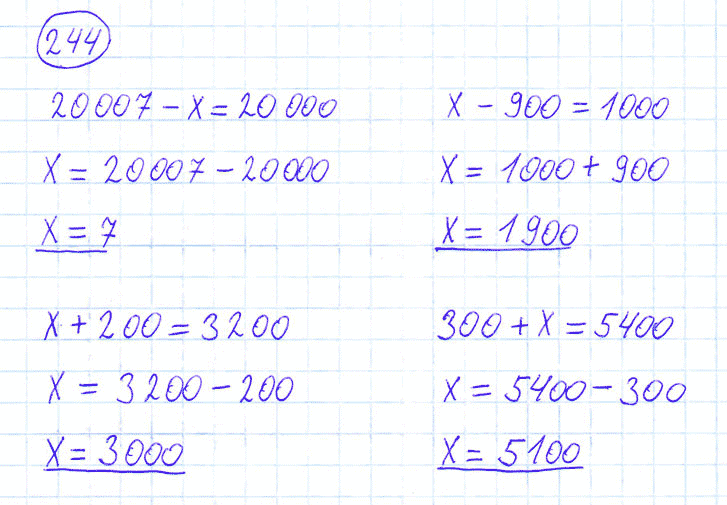 244
20007 - x = 20000
x = 20007 - 20000
x = 7
x - 900 = 1000
x = 1000 + 900
x = 1900
x + 200 = 3200
x = 3200 - 200
x = 3000
300 + x = 5400
x = 5400 - 300
x = 5100